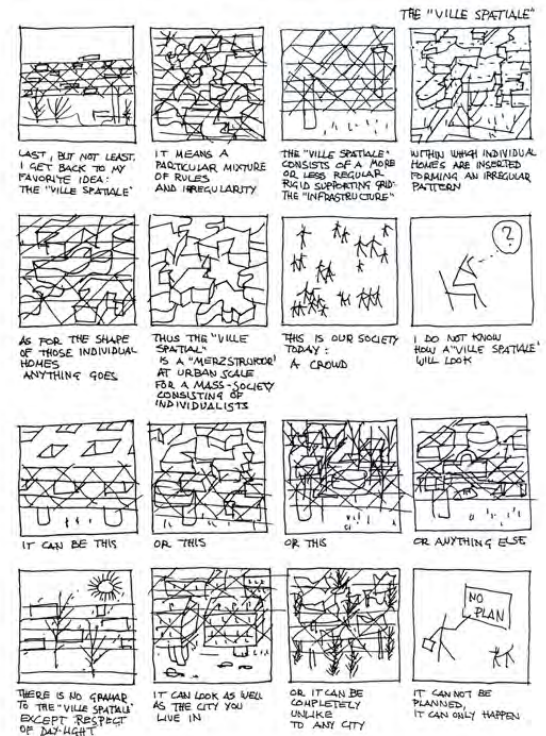 THE "VILLE SPATIALE"
LAST, BUT NOT LEAST,
I GET BACK TO MY
FAVORITE IDEA:
THE "VILLE SPATIALE"
IT MEANS A
PARTICULAR MIXTURE
OF RULES
AND IRREGULARITY
THE "VILLE SPATIALE"
CONSISTS OF A MORE
OR LESS REGULAR
RIGID SUPPORTING GRID:
THE "INFRASTRUCTURE"
WITHIN WHICH INDIVIDUAL
HOMES ARE INSERTED
FORMING AN IRREGULAR
PATTERN
AS FOR THE SHAPE
OF THOSE INDIVIDUAL
HOMES
ANYTHING GOES
THUS THE "VILLE
SPATIAL"
IS A "MERZSTRUKTUR"
AT URBAN SCALE
FOR A MASS-SOCIETY
CONSISTING OF
INDIVIDUALISTS
THIS IS OUR SOCIETY
TODAY:
A CROWD
?
I DO NOT KNOW
HOW A "VILLE SPATIALE"
WILL LOOK
IT CAN BE THIS
OR THIS
OR THIS
OR ANYTHING ELSE
THERE IS NO GRAMAR
TO THE "VILLE SPATIALE"
EXCEPT RESPECT
OF DAY-LIGHT
IT CAN LOOK AS WELL
AS THE CITY YOU
LIVE IN
OR IT CAN BE
COMPLETELY
UNLIKE
TO ANY CITY
NO
PLAN
IT CANNOT BE
PLANNED,
IT CAN ONLY HAPPEN